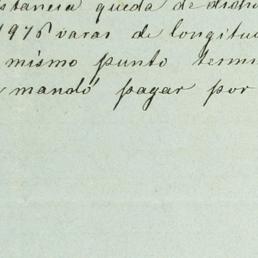 stancia queda de dicho
1975 varas de longitud
mismo punto termi
mandó pagar por